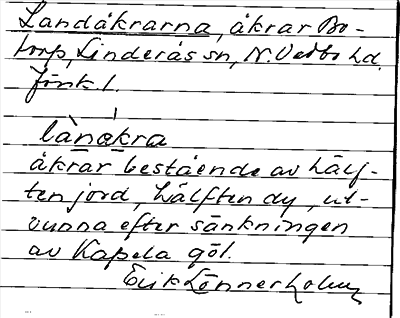 Landåkrarna, åkrar Bo-
torp, Linderås sn, N. Vedbo hd.
Jönk l.
lànákra
åkrar bestående av hälf-
ten jord, hälften dy, ut-
vunna efter sänkningen
av Kapela göl.
Erik Lönnerholm